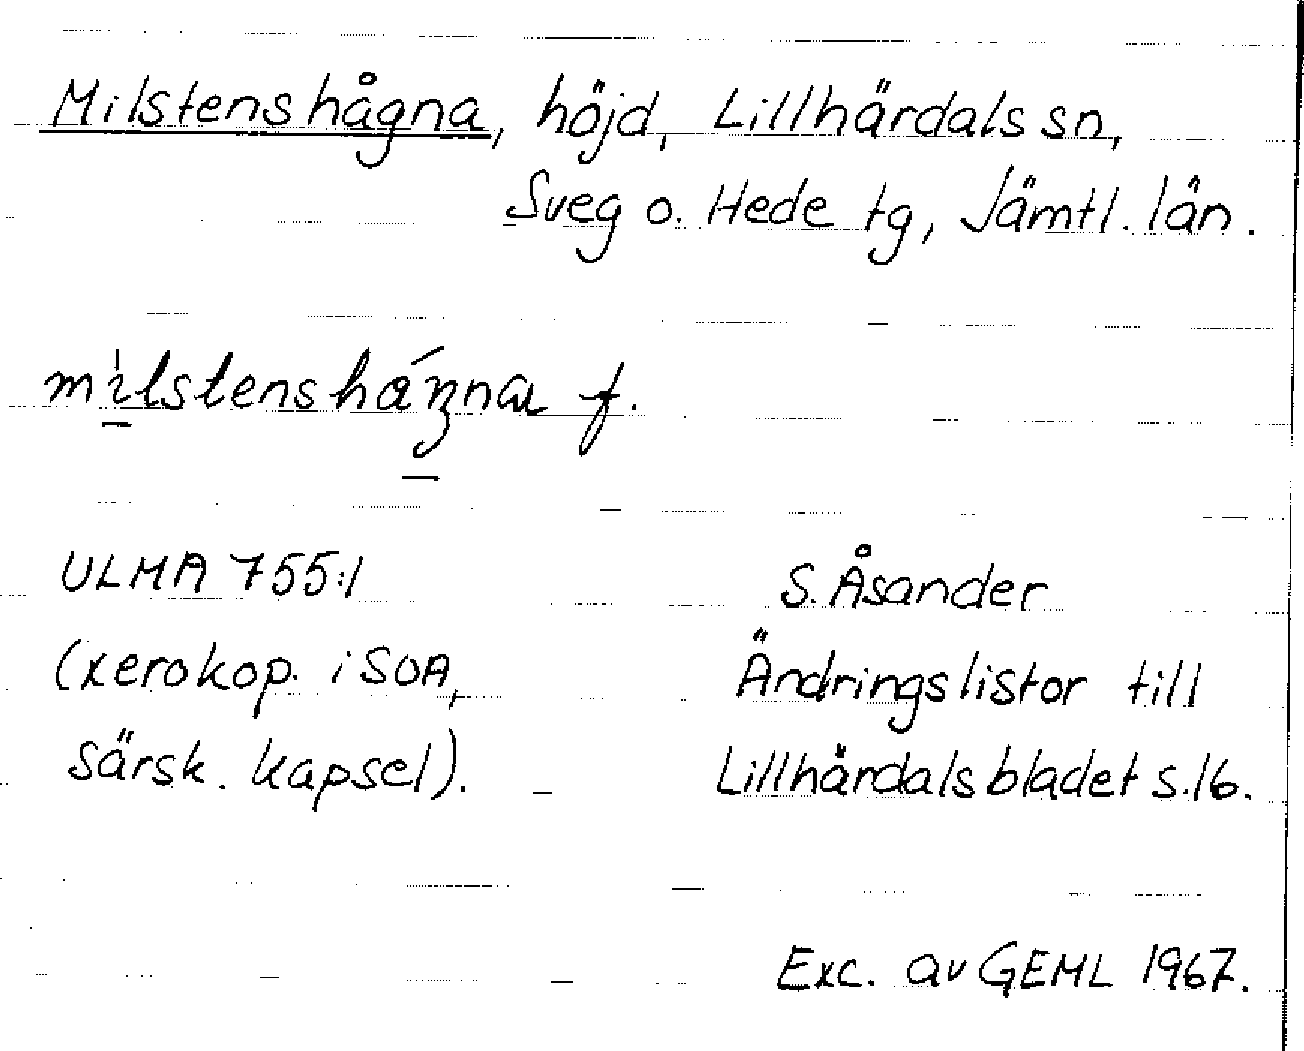 Milstenshågna, höjd, Lillhärdals sn,
Sveg o. Hede tg, Jämtl. län.
f.
ULMA 755:1
S. Åsander
(xerokop. i SOA,
Ändringslistor till
särsk. kapsel).
Lillhärdalsbladet s.16.
Exc. av GEML 1967.